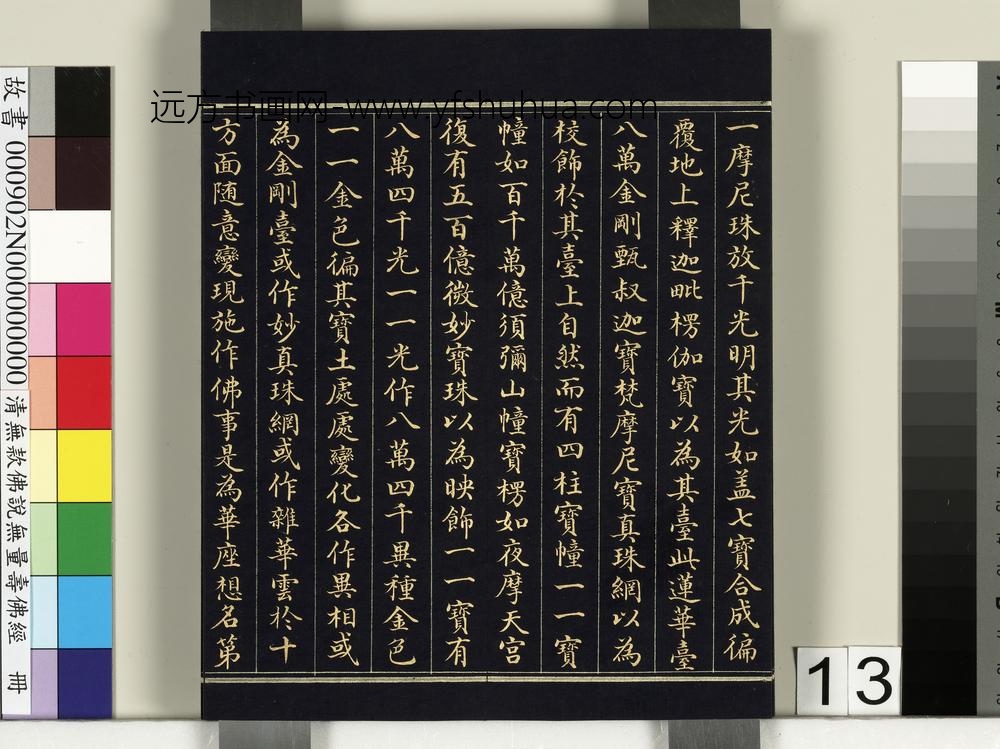 一摩尼珠放千光明其光如盖七寶合成徧
覆地上釋迦毗楞伽寶以為其臺此蓮華臺
八萬金剛甄叔迦寶梵摩尼寶真珠網以為
校飾於其臺上自然而有四柱寶幢一一寶
幢如百千萬億須彌山幢寶楞如夜摩天宮
復有五百億微妙寶珠以為映飾一一寶有
八萬四千光一一光作八萬四千異種金色
一一金色徧其寶土處處變化各作異相或
為金剛臺或作妙真珠網或作雜華雲於十
方面随意變現施作佛事是為華座想名第
远方书画网-www.yfshuhua.com
故書 000902N000000000 清無款佛說無量壽佛經 冊
13